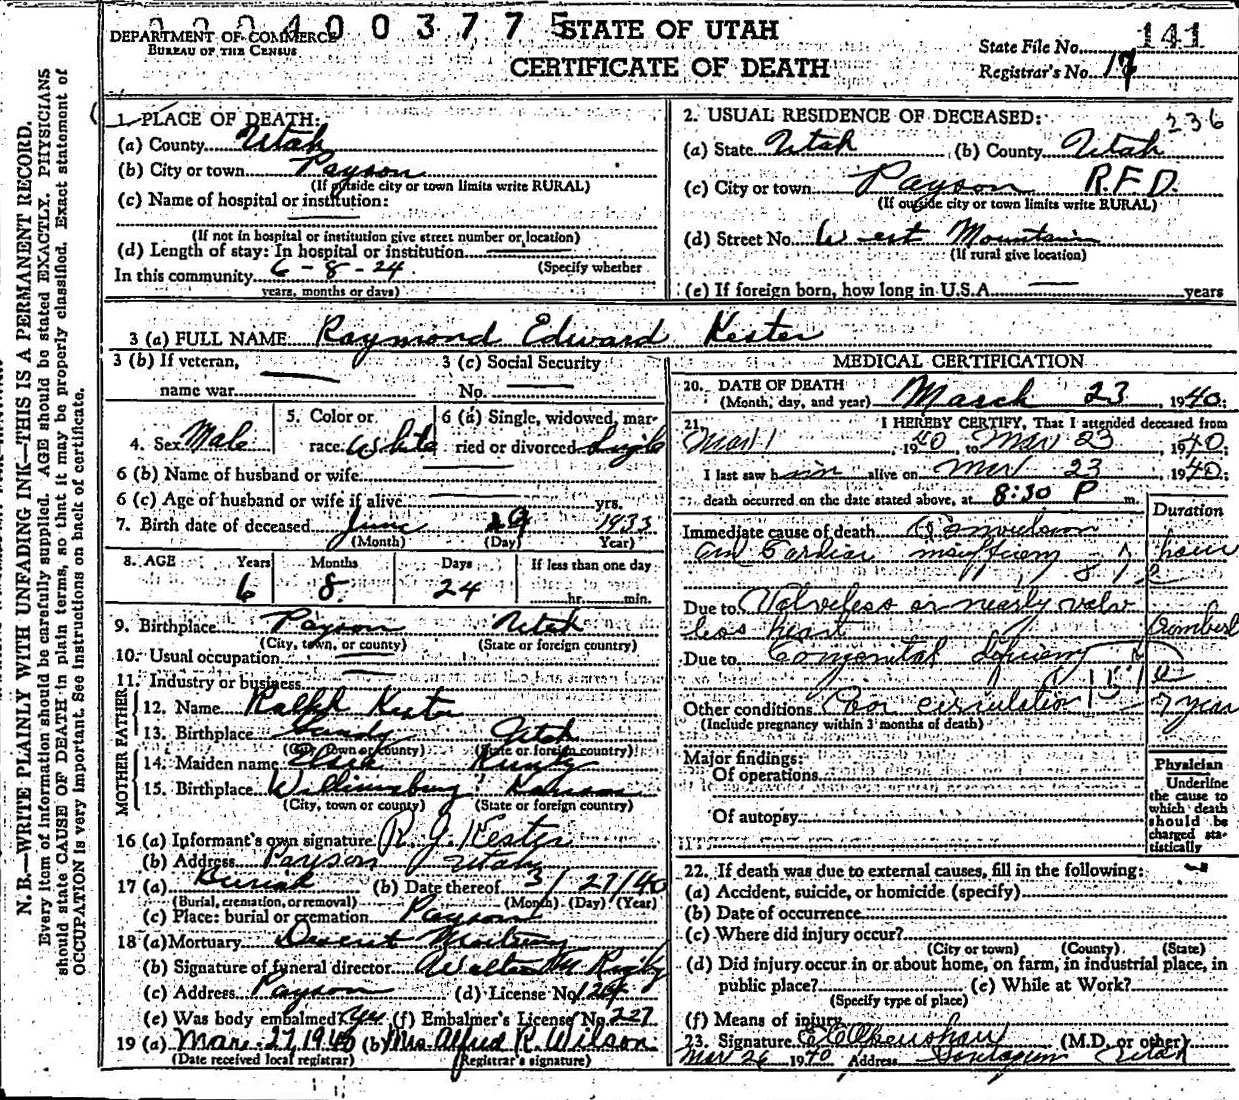 2224003775 STATE OF UTAH
DEPARTMENT OF COMMERCE
BUREAU OF THE CENSUS
CERTIFICATE OF DEATH
State File No. 141
Registrar's No. 17
N. B.—WRITE PLAINLY WITH UNFADING INK—THIS IS A PERMANENT RECORD.
Every item of information should be carefully supplied. AGE should be stated EXACTLY. PHYSICIANS
should state CAUSE OF DEATH in plain terms, so that it may be properly classified. Exact statement of
OCCUPATION is very important. See instructions on back of certificate.
1. PLACE OF DEATH:
(a) County Utah
(b) City or town Payson
(If outside city or town limits write RURAL)
(c) Name of hospital or institution:
(If not in hospital or institution give street number or location)
(d) Length of stay: In hospital or institution
In this community 6-8-24 (Specify whether
years, months or days)
2. USUAL RESIDENCE OF DECEASED: 236
(a) State Utah (b) County Utah
(c) City or town Payson R.F.D.
(If outside city or town limits write RURAL)
(d) Street No. West Mountain
(If rural give location)
(e) If foreign born, how long in U.S.A. years
3 (a) FULL NAME Raymond Edward Kester
3 (b) If veteran, 3 (c) Social Security
name war No.
4. Sex Male 5. Color or race White 6 (a) Single, widowed, married or divorced Single
6 (b) Name of husband or wife
6 (c) Age of husband or wife if alive yrs.
7. Birth date of deceased June 29 1933
(Month) (Day) Year)
8. AGE Years Months Days If less than one day
6 8 24 hr. min.
9. Birthplace Payson Utah
(City, town, or county) (State or foreign country)
10. Usual occupation
11. Industry or business
FATHER
12. Name Ralph Kester
13. Birthplace Sandy Utah
(City, town or county) (State or foreign country)
MOTHER
14. Maiden name Elsie
15. Birthplace Williamsburg Kansas
(City, town or county) (State or foreign country)
16 (a) Informant's own signature R. J. Kester
(b) Address Payson Utah
17 (a) Burial (b) Date thereof 3/27/40
(Burial, cremation, or removal) (Month) (Day) (Year)
(c) Place: burial or cremation Payson
18 (a) Mortuary Mortuary
(b) Signature of funeral director Walter M Rigby
(c) Address Payson (d) License No. 129
(e) Was body embalmed yes (f) Embalmer's License No. 227
19 (a) Mar. 27 1940 (b) Mrs. Alfred R. Wilson
(Date received local registrar) (Registrar's signature)
MEDICAL CERTIFICATION
20. DATE OF DEATH March 23 1940
(Month, day, and year)
21. I HEREBY CERTIFY, That I attended deceased from
Mar 1 1940, to Mar 23 1940;
I last saw him alive on Mar 23 1940;
death occurred on the date stated above, at 8:30 P m.
Duration
Immediate cause of death Convulsion
and Cardiac hour
Due to Valveless or nearly valve
less heart
Due to Congenital
Other conditions Poor circulation 7 year
(Include pregnancy within 3 months of death)
Major findings:
Of operations
Of autopsy
Physician
Underline
the cause to
which death
should be
charged sta-
tistically
22. If death was due to external causes, fill in the following:
(a) Accident, suicide, or homicide (specify)
(b) Date of occurrence
(c) Where did injury occur?
(City or town) (County) (State)
(d) Did injury occur in or about home, on farm, in industrial place, in
public place? (e) While at Work?
(Specify type of place)
(f) Means of injury
23. Signature (M.D. or other)
Mar 26 1940 Address Utah